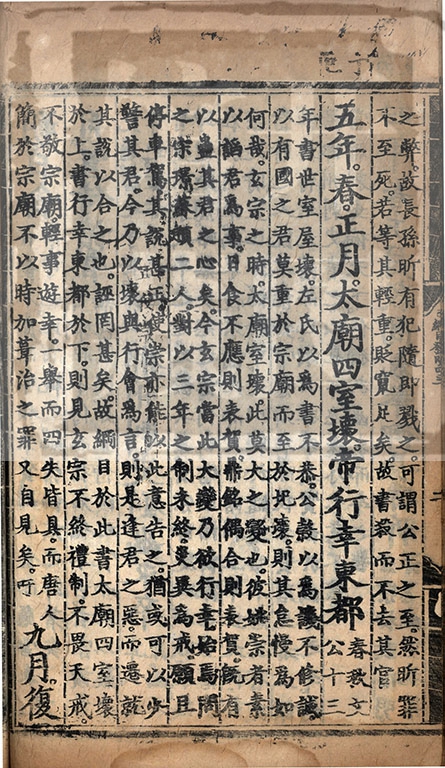 之弊。故長孫昕有犯隨即戮之。可謂公正之至。然昕罪
不至死若等其輕重。貶竄足矣。故書殺而不去其官
五年。春。正月。太廟四室壞。帝行幸東都
春秋文
公十三
年書世室屋壞。左氏以爲書不恭。公穀以爲譏不修。誠
以有國之君莫重於宗廟。而至於圮壞。則其怠慢爲如
何哉。玄宗之時。太廟室壞。此莫大之變也。彼姚崇者素
以謟君爲事。日食不應則表賀。鼎銘偶合則表賀。既有
以蠱其君之心矣。今玄宗當此大變。乃欲行幸。始焉問
之宋璟蘇頲二人。對以三年之制未終。災異爲戒。願且
停車駕。其說甚正。使崇亦能以此意告之。猶或可以少
警其君。今乃以壞與行會爲言。則是逢君之惡。而遷就
其說以合之也。誣罔甚矣。故綱目於此書太廟四室壞
於上。書行幸東都於下。則見玄宗不終禮制。不畏天戒。
不敬宗廟。輕事遊幸。一舉而四失皆具。而唐人
簡於宗廟不以時加葺治之罪又自見矣。吁
九月。復